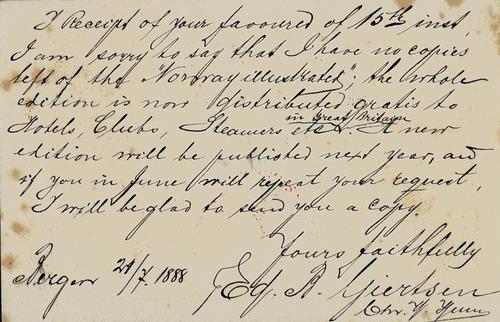 I Receipt of your favoured of 15th inst
I am sorry to say that I have no copies
left of the "Norway illustrated"; the whole
edition is now distributed gratis to
in Great Britain
Hotels, Clubs, Steamers etc. A new
edition will be published next year, and
if you in June will repeat your request,
I will be glad to send you a copy.
Yours faithfully
Bergen 21/7. 1888
Ed. B. Giertsen
Chr.